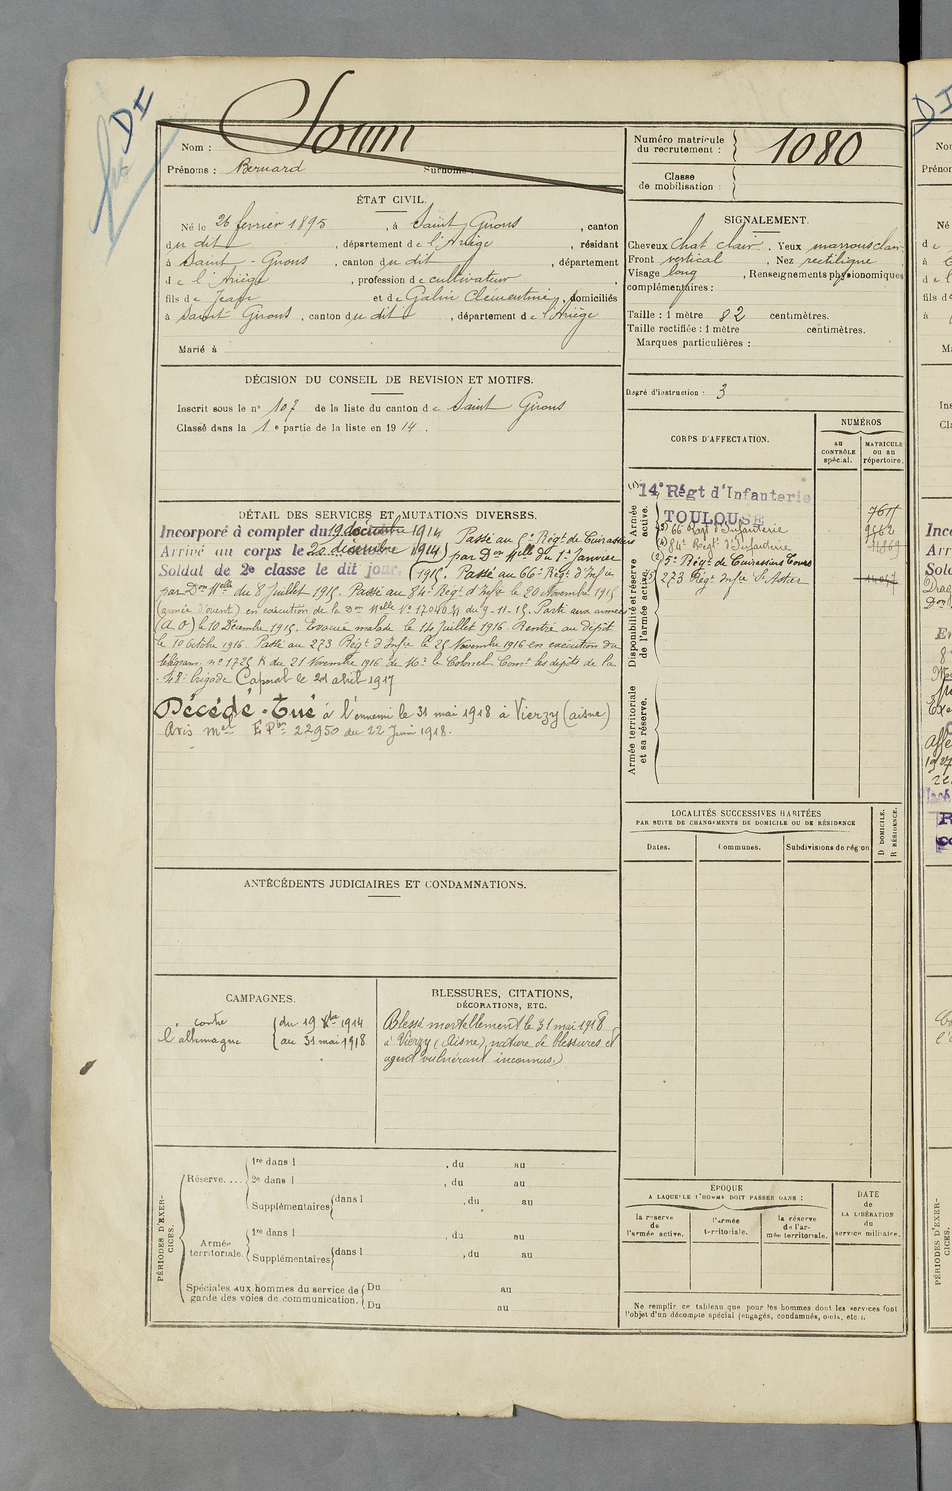 DI
Nom : Souin
Prénoms : Bernard Surnoms :
Numéro matricule
du recrutement : 1080
Classe
de mobilisation :
ÉTAT CIVIL.
Né le 26 fevrier 1895, à Saint Girons, canton
du dit, département de l'Ariège, résidant
à Saint-Girons, canton du dit, département
de l'Ariège, profession de cultivateur,
fils de Jean et de Galin Clementine, domiciliés
à Saint Girons, canton du dit, département de l'Ariège
Marié à
SIGNALEMENT.
Cheveux chat clair. Yeux marrons clair
Front vertical, Nez rectiligne
Visage long, Renseignements physionomiques
complémentaires :
Taille : 1 mètre 82 centimètres.
Taille rectifiée : 1 mètre centimètres.
Marques particulières :
Degré d'instruction : 3
DÉCISION DU CONSEIL DE REVISION ET MOTIFS.
Inscrit sous le n° 107 de la liste du canton de Saint Girons
Classé dans la 1e partie de la liste en 1914.
DÉTAIL DES SERVICES ET MUTATIONS DIVERSES.
Incorporé à compter du 19 décembre 1914
Arrivé au corps le 20 décembre 1914
Soldat de 2e classe le dit jour.
Passé au 5e Régt de Cuirassiers
par Don Melle du 1er Janvier
1915. Passé au 66e Régt d'Infie
par Don Melle du 8 Juillet 1915. Passé au 84e Régt d'Infie le 20 Novembre 1915
(armée d'orient) en exécution de la Don Melle N° 17040 K du 9-11-15. Parti aux armées
(A O) le 10 Décembre 1915. Evacué malade le 14 Juillet 1916. Rentré au dépôt
le 10 octobre 1916. Passé au 273 Régt d'Infie le 25 Novembre 1916 en exécution du
télégram. n° 1725 K du 21 Novembre 1916 de Mr le Colonel Comt les dépôts de la
48e brigade Caporal le 20 abril 1917
Décédé - Tué à l'ennemi le 31 mai 1918 à Vierzy (aisne)
Avis mel E Pbr 22950 du 22 Juin 1918.
CORPS D'AFFECTATION.
NUMÉROS
AU
CONTRÔLE
spécial.
MATRICULE
OU AU
répertoire.
Armée
active.
(1) 14e Régt d'Infanterie
TOULOUSE
(3) 66 Regt d'Infanterie
(4) 84e Regt d'Infanterie
(2) 5e Régt de Cuirassiers Tours
(5) 273 Régt Infie St Astier
Disponibilité et réserve
de l'armée active.
Armée territoriale
et sa réserve.
LOCALITÉS SUCCESSIVES HABITÉES
PAR SUITE DE CHANGEMENTS DE DOMICILE OU DE RÉSIDENCE
Dates.
Communes.
Subdivisions de région
D DOMICILE.
R RÉSIDENCE.
ANTÉCÉDENTS JUDICIAIRES ET CONDAMNATIONS.
CAMPAGNES.
contre
l'allemagne
du 19 Xbre 1914
au 31 mai 1918
BLESSURES, CITATIONS,
DÉCORATIONS, ETC.
Blessé mortellement le 31 mai 1918
à Vierzy (Aisne), nature de blessures et
agent vulnérant inconnus.)
PÉRIODES D'EXER-
CICES.
Réserve....
1re dans l , du au
2e dans l , du au
Supplémentaires dans l , du au
Armée
territoriale.
1re dans l , du au
Supplémentaires dans l , du au
Spéciales aux hommes du service de
garde des voies de communication.
Du au
Du au
ÉPOQUE
A LAQUELLE L'HOMME DOIT PASSER DANS :
la réserve
de
l'armée active.
l'armée
territoriale.
la réserve
de l'ar-
mée territoriale.
DATE
de
LA LIBÉRATION
du
service militaire.
Ne remplir ce tableau que pour les hommes dont les services font
l'objet d'un décompte spécial (engagés, condamnés, omis, etc.).